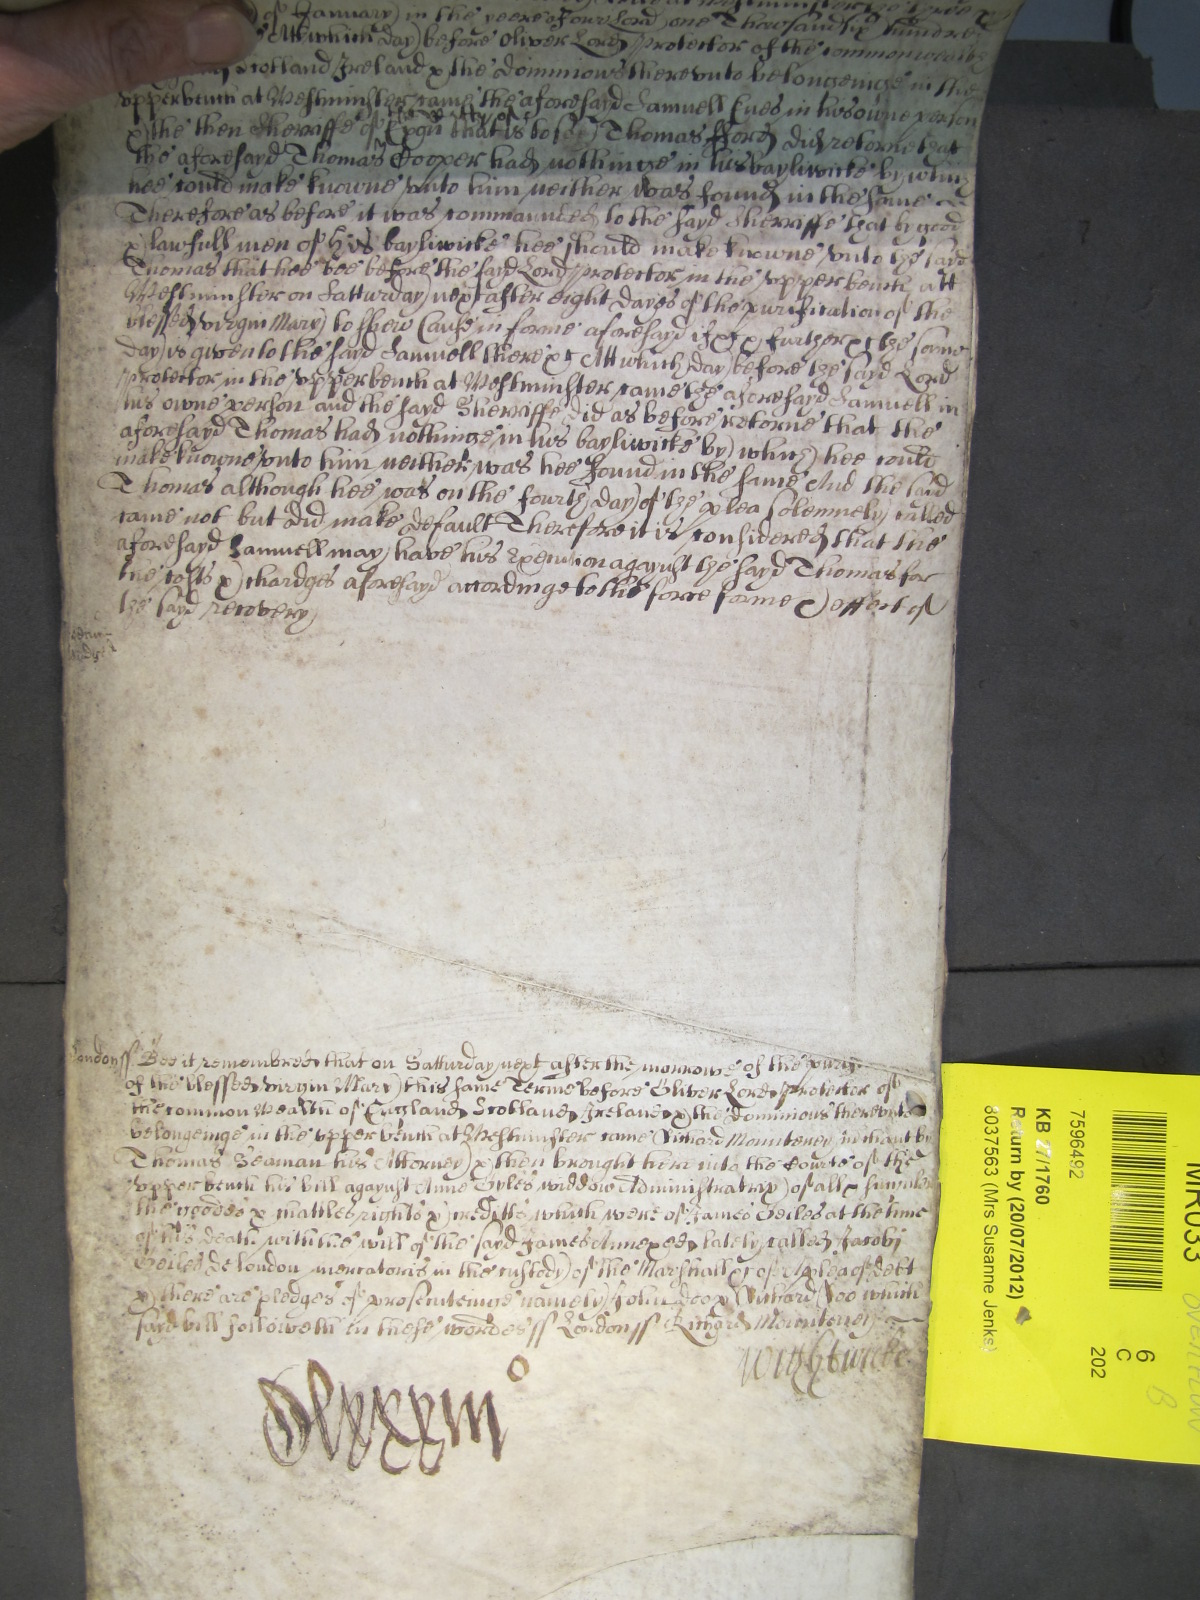 of January in the yeere of our Lord one Thousand six hundred
Att which day before Oliver Lord Protector of the commonwealth
Scotland Ireland & the dominions thereunto belongeinge in the
upper bench at Westminster came the aforesayd Samuell Eves in his owne person
& the then Sherriffe of the County of Essex that is to say Thomas fford did retorne that
the aforesayd Thomas Cooper had nothinge in his bayliwicke by which
hee could make knowne unto him neither was found in the same
Therefore as before it was commaunded to the sayd Sherriffe that by good
& lawfull men of his bayliwicke hee should make knowne unto the sayd
Thomas that hee bee before the sayd Lord Protector in the upper bench att
Westminster on Satturday next after eight dayes of the purification of the
blessed virgin Mary to shew Cause in forme aforesayd if &c & further &c the same
day is given to the sayd Samuell there &c Att which day before the sayd Lord
Protector in the upper bench at Westminster came the aforesayd Samuell in
his owne person and the sayd Sherriffe did as before retorne that the
aforesayd Thomas had nothinge in his bayliwicke by which hee could
make knowne unto him neither was hee found in the same And the said
Thomas although hee was on the fourth day of the plea solemnely called
came not but did make default Therefore it is considered that the
aforesayd Samuell may have his Execution against the sayd Thomas for
the costs & chardges aforesayd accordinge to the force forme & effect of
the sayd recovery
Londonss Bee it remembred that on Satturday next after the morrowe of the purif
of the blessed virgin Mary this same Terme before Oliver Lord Protector of
the common Wealth of England Scotland Ireland & the dominions thereunto
belongeinge in the upper bench at Westminster came Richard Mounteney by
Thomas Seaman his Attorney & then brought here into the Courte of the
upper bench his bill against Anne Gyles widdow Administratrix of all & singular
the goodes & cattles rights & creditts which were of James Geiles at the time
of his death with the will of the sayd James Annexed lately called Jacobi
Geiles de London mercatoris in the custody of the Marshall &c of A plea of debt
& there are pledges of prosecuteinge namely John Doo & Richard Roo which
sayd bill followeth in these wordes ss Londonss Richard Mounteney
Wightwicke
Clxxxiii o
MR033
6
C
202
7596492
KB 27/1760
Return by (20/07/2012)
8037563 (Mrs Susanne Jenks)